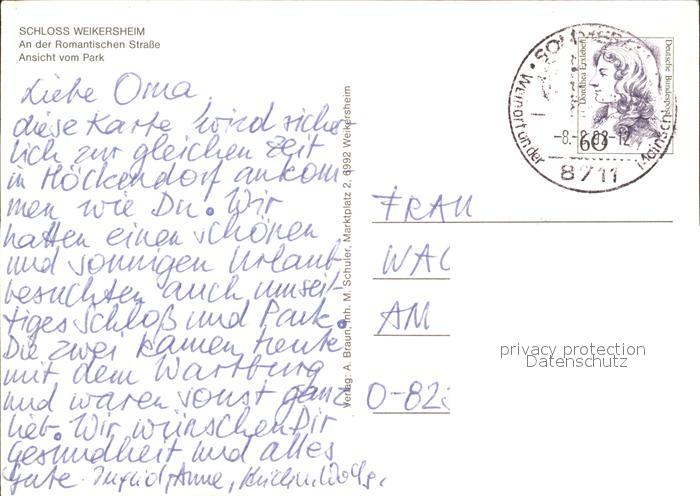 SCHLOSS WEIKERSHEIM
An der Romantischen Straße
Ansicht vom Park
Liebe Oma,
diese Karte wird sicher-
lich zur gleichen Zeit
in Höckendorf ankom
men wie Du. Wir
hatten einen schönen
und sonnigen Urlaub
besuchten auch umseit
tiges Schloß und Park.
Die zwei kamen heute
mit dem Wartburg
und waren sonst ganz
lieb. Wir wünschen Dir
Gesundheit und alles
Gute. Ingrid, Anne,
Verlag: A. Braun, Inh. M. Schuler, Marktplatz 2, 6992 Weikersheim
Deutsche Bundespost
Dorothea Erxleben
60
Weinort an der
8711
FRAU
WAL
AM
O-82
privacy protection
Datenschutz